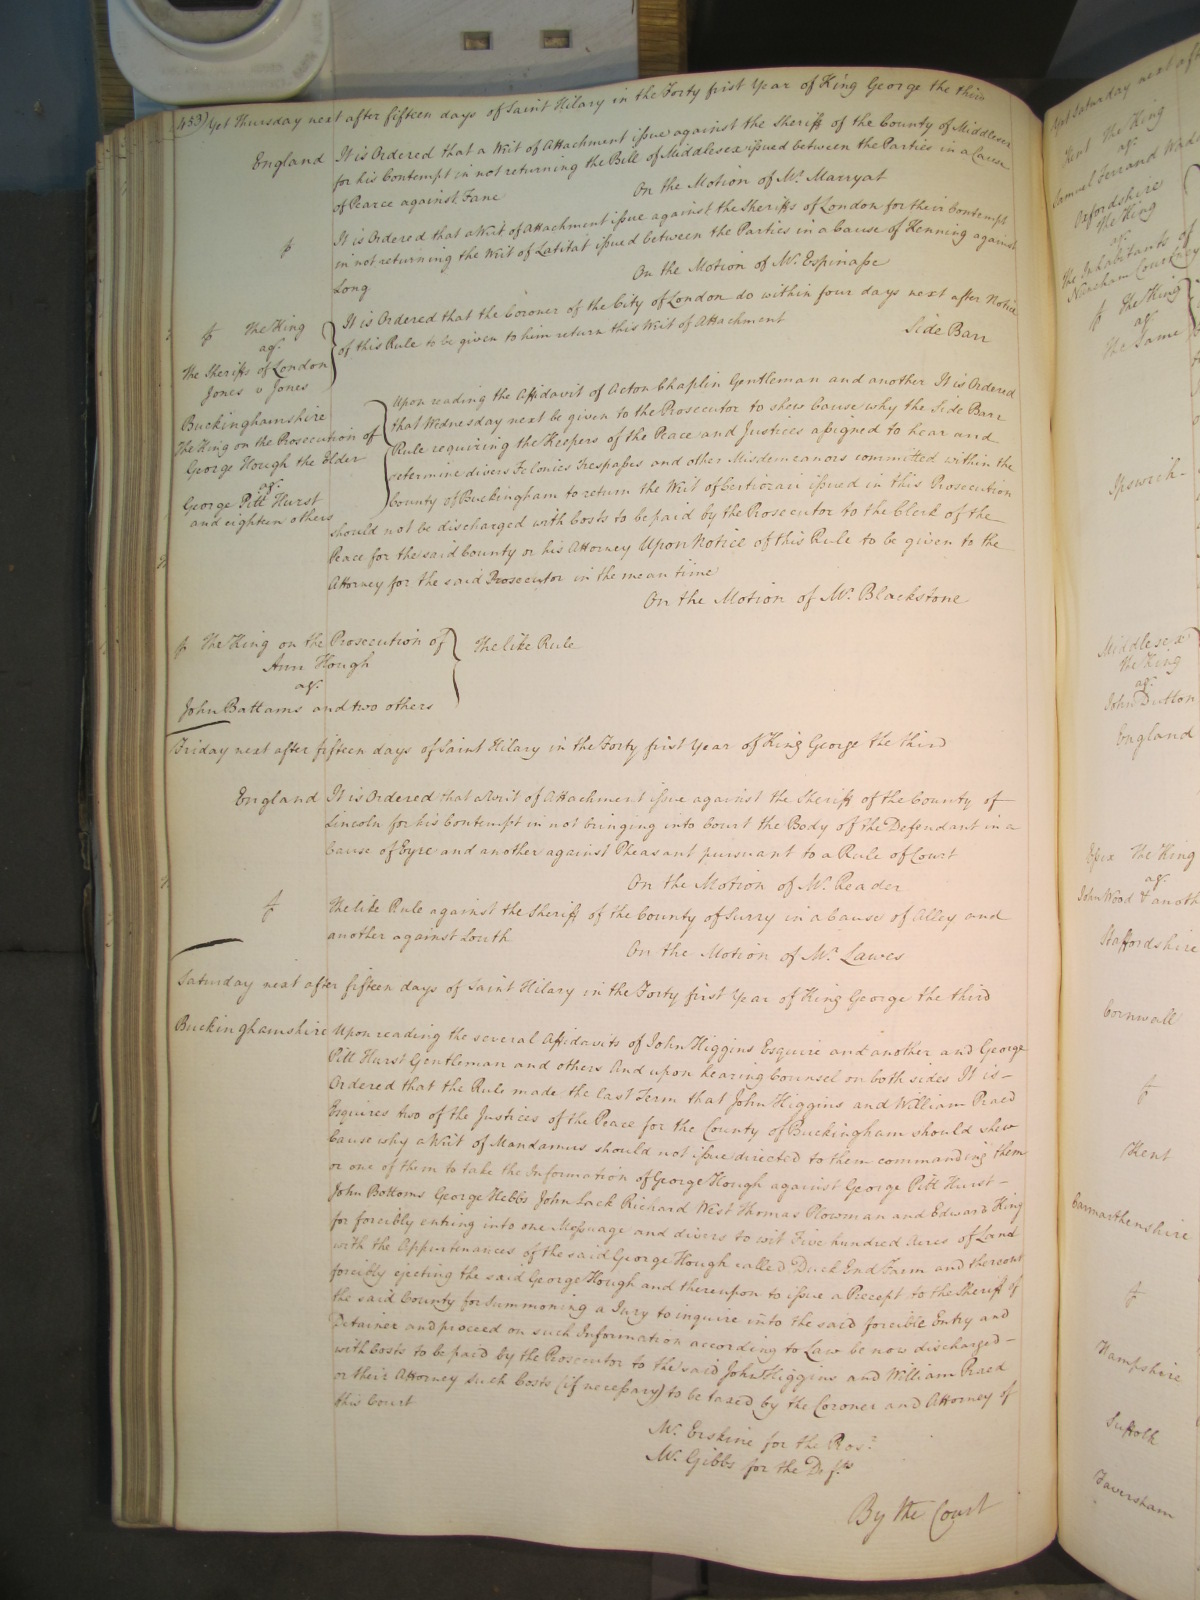 433) Yet Thursday next after fifteen days of Saint Hilary in the Forty first Year of King George the third
England It is Ordered that a Writ of Attachment issue against the Sheriff of the County of Middlesex
for his Contempt in not returning the Bill of Middlesex issued between the Parties in a Cause
of Pearce against Fane
On the Motion of Mr. Marryat
It is Ordered that a Writ of Attachment issue against the Sheriffs of London for their Contempt
in not returning the Writ of Latitat issued between the Parties in a Cause of Henning against
Long
On the Motion of Mr. Espinasse
The King
agt.
The Sheriffs of London
Jones v Jones
It is Ordered that the Coroner of the City of London do within four days next after Notice
of this Rule to be given to him return this Writ of Attachment
Side Barr
Buckinghamshire
The King on the Prosecution of
George Hough the Elder
agt.
George Pitt Hurst
and eighteen others
Upon reading the Affidavit of Acton Chaplin Gentleman and another It is Ordered
that Wednesday next be given to the Prosecutor to shew Cause why the Side Barr
Rule requiring the Keepers of the Peace and Justices assigned to hear and
determine divers Felonies Trespasses and other Misdemeanors committed within the
County of Buckingham to return the Writ of Certiorari issued in this Prosecution
should not be discharged with Costs to be paid by the Prosecutor to the Clerk of the
Peace for the said County or his Attorney Upon Notice of this Rule to be given to the
Attorney for the said Prosecutor in the mean time
On the Motion of Mr. Blackstone
The King on the Prosecution of
Ann Hough
agt.
John Battams and two others
The like Rule
Friday next after fifteen days of Saint Hilary in the Forty first Year of King George the third
England It is Ordered that a Writ of Attachment issue against the Sheriff of the County of
Lincoln for his Contempt in not bringing into Court the Body of the Defendant in a
Cause of Eyre and another against Pheasant pursuant to a Rule of Court
On the Motion of Mr. Reader
The like Rule against the Sheriff of the County of Surry in a Cause of Alley and
another against Louth
On the Motion of Mr. Lawes
Saturday next after fifteen days of Saint Hilary in the Forty first Year of King George the third
Buckinghamshire Upon reading the several Affidavits of John Higgins Esquire and another and George
Pitt Hurst Gentleman and others And upon hearing Counsel on both sides It is
Ordered that the Rule made the last Term that John Higgins and William Praed
Esquires two of the Justices of the Peace for the County of Buckingham should shew
Cause why a Writ of Mandamus should not issue directed to them commanding them
or one of them to take the Information of George Hough against George Pitt Hurst
John Bottoms George Hebbs John Lack Richard West Thomas Plowman and Edward King
for forcibly entring into one Messuage and divers to wit Five hundred Acres of Land
with the Appurtenances of the said George Hough called Duck End Farm and thereout
forcibly ejecting the said George Hough and thereupon to issue a Precept to the Sheriff of
the said County for Summoning a Jury to inquire into the said forcible Entry and
Detainer and proceed on such Information according to Law be now discharged
with Costs to be paid by the Prosecutor to the said John Higgins and William Praed
or their Attorney such Costs (if necessary) to be taxed by the Coroner and Attorney of
this Court
Mr. Erskine for the Pros.
Mr. Gibbs for the Defts
By the Court
Saturday next
Kent The King
agt.
Samuel Ferrand
Oxfordshire
The King
agt.
The Inhabitants of
Nuneham Courtney
The King
agt.
The Same
Ipswich
Middlesex
The King
agt.
John Dutton
England
Essex The King
agt.
John Wood & anoth
Staffordshire
Cornwall
Kent
Carmarthenshire
Hampshire
Suffolk
Faversham